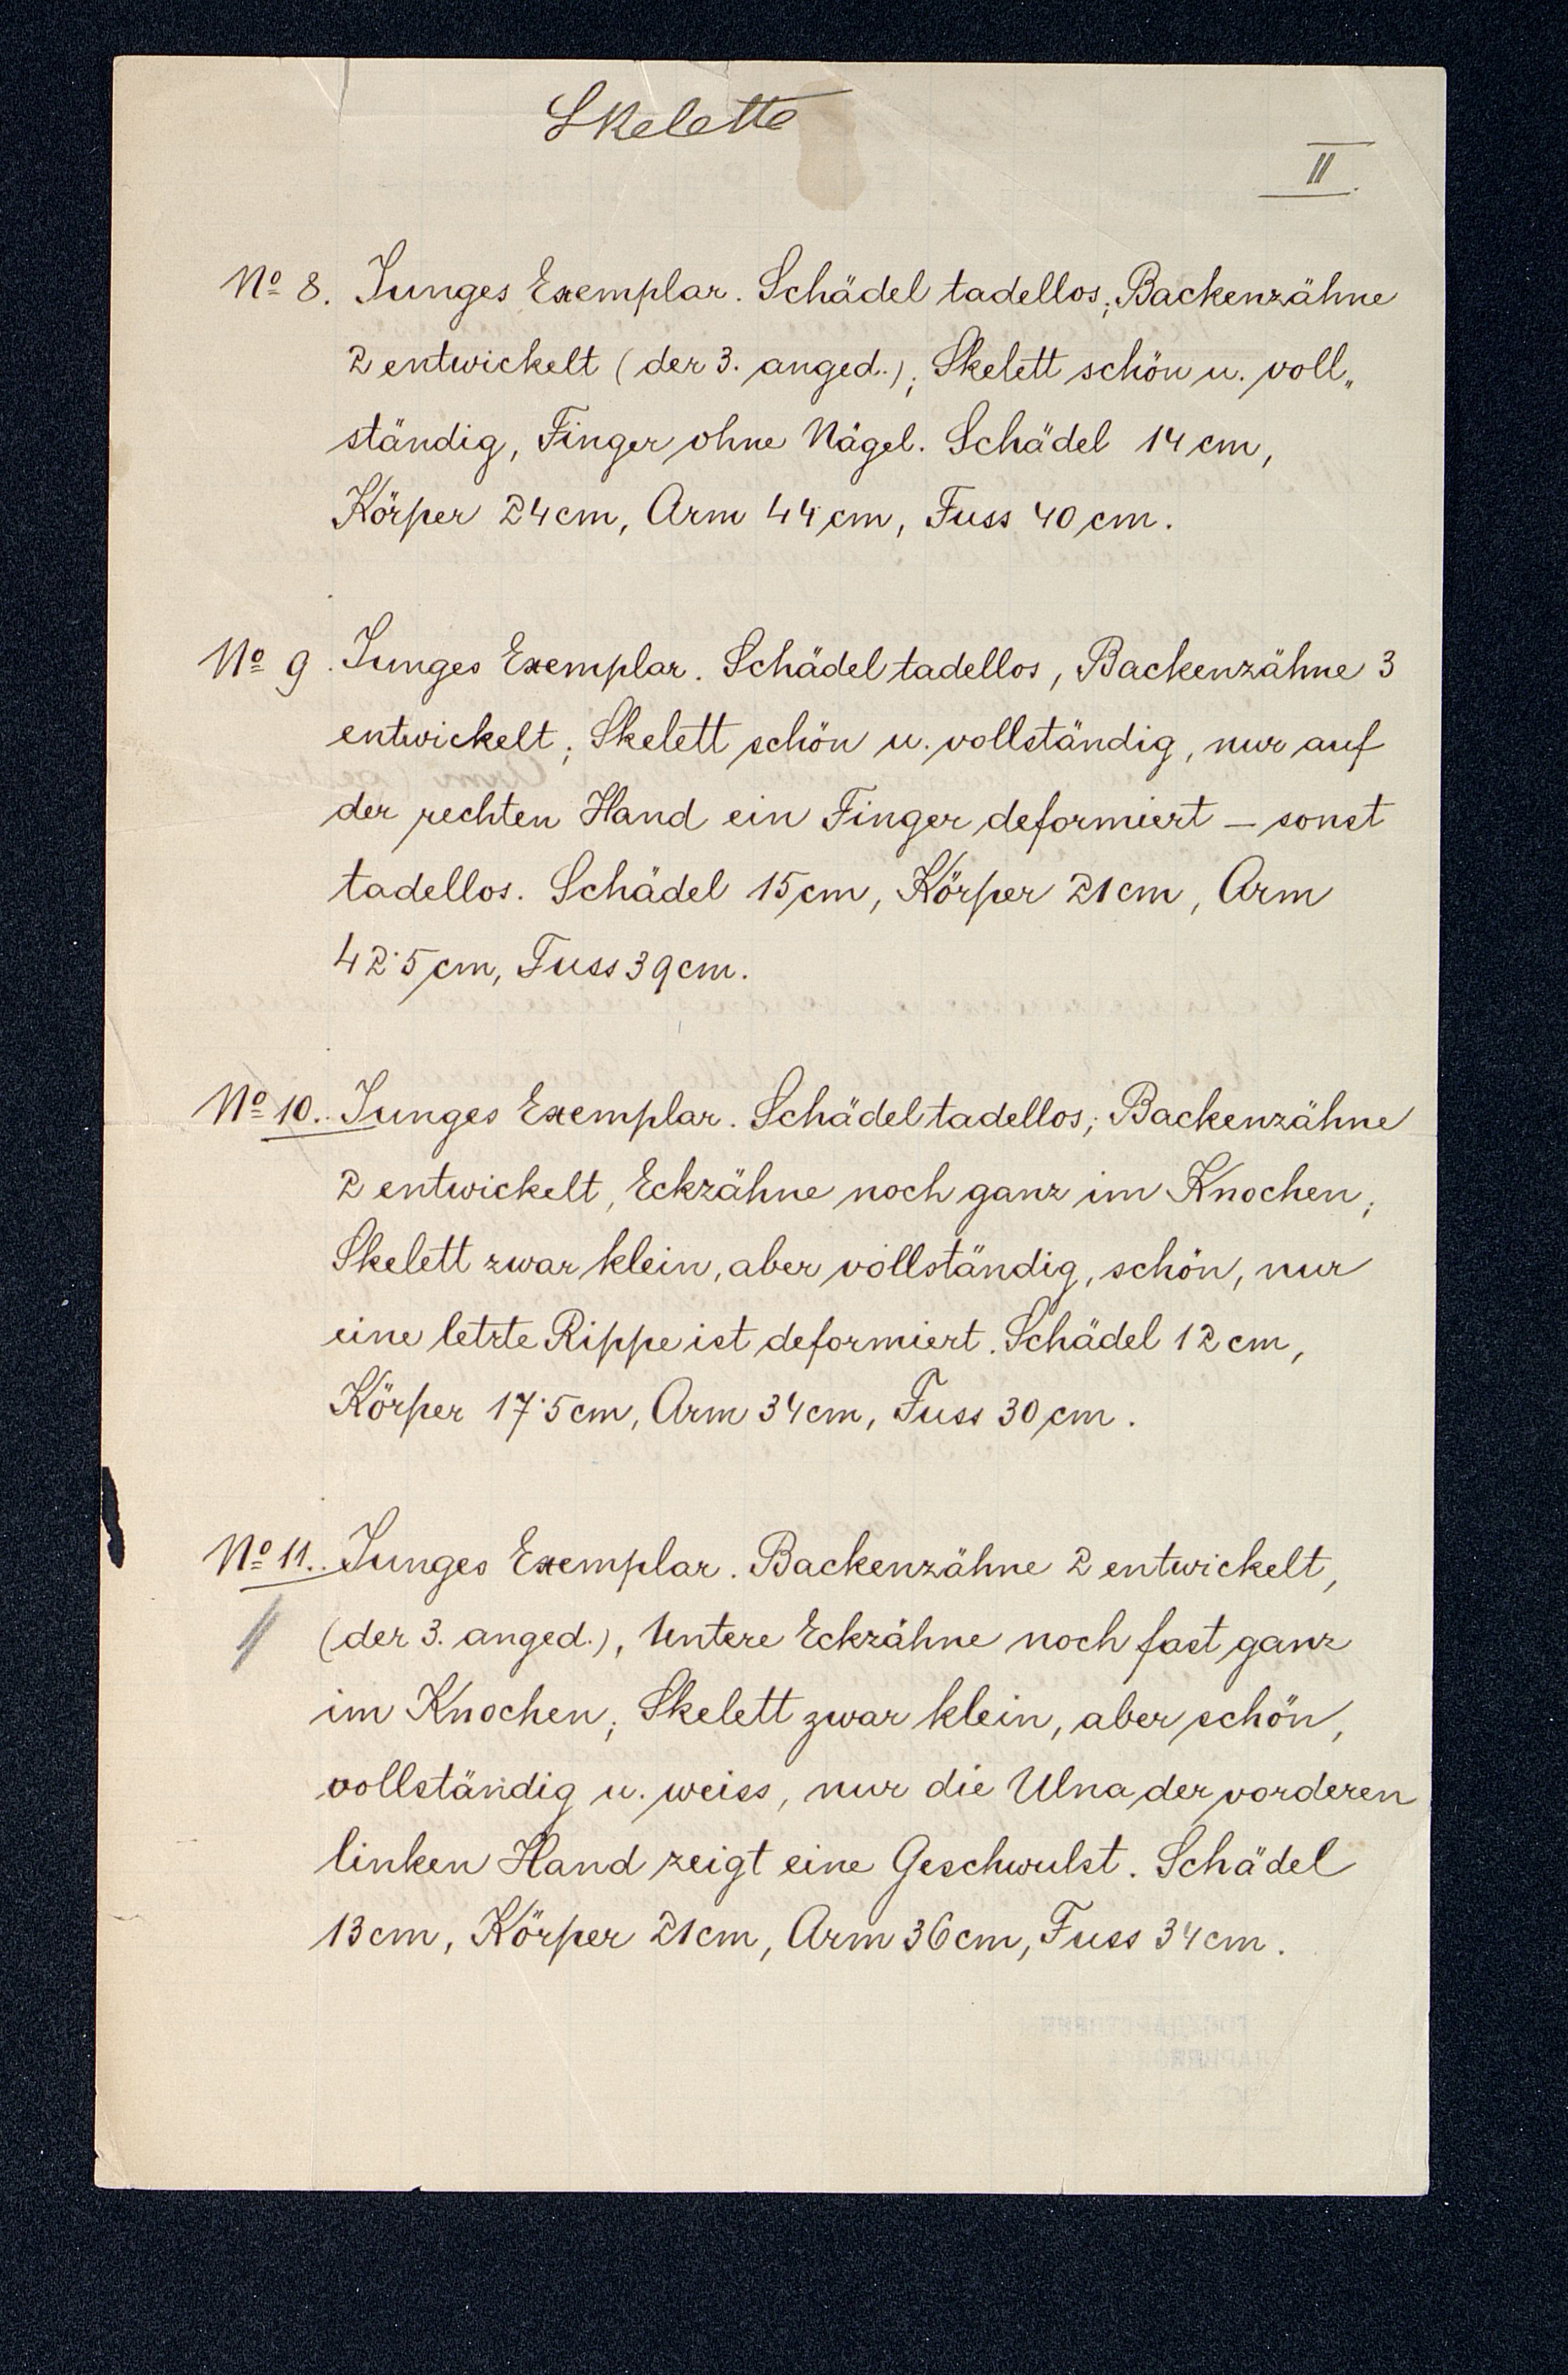 Skelette
II.
No 8. Junges Exemplar. Schädel tadellos; Backenzähne
2 entwickelt (der 3. anged.); Skelett schön u. voll„
ständig, Finger ohne Nägel. Schädel 14 cm,
Körper 24 cm, Arm 44 cm, Fuss 40 cm.
No 9. Junges Exemplar. Schädel tadellos, Backenzähne 3
entwickelt; Skelett schön u. vollständig, nur auf
der rechten Hand ein Finger deformiert – sonst
tadellos. Schädel 15 cm, Körper 21 cm, Arm
42·5 cm, Fuss 39 cm.
No 10. Junges Exemplar. Schädel tadellos; Backenzähne
2 entwickelt, Eckzähne noch ganz im Knochen;
Skelett zwar klein, aber vollständig, schön, nur
eine letzte Rippe ist deformiert. Schädel 12 cm,
Körper 17·5 cm, Arm 34 cm, Fuss 30 cm.
No 11. Junges Exemplar. Backenzähne 2 entwickelt,
(der 3. anged.), Untere Eckzähne noch fast ganz
im Knochen; Skelett zwar klein, aber schön,
vollständig u. weiss, nur die Ulna der vorderen
linken Hand zeigt eine Geschwulst. Schädel
13 cm, Körper 21 cm, Arm 36 cm, Fuss 34 cm.